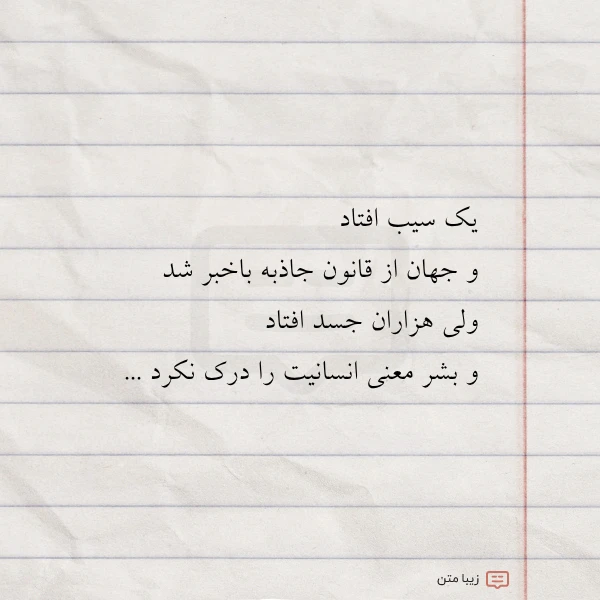 یک سیب افتاد
و جهان از قانون جاذبه باخبر شد
ولی هزاران جسد افتاد
و بشر معنی انسانیت را درک نکرد ...
زیبا متن